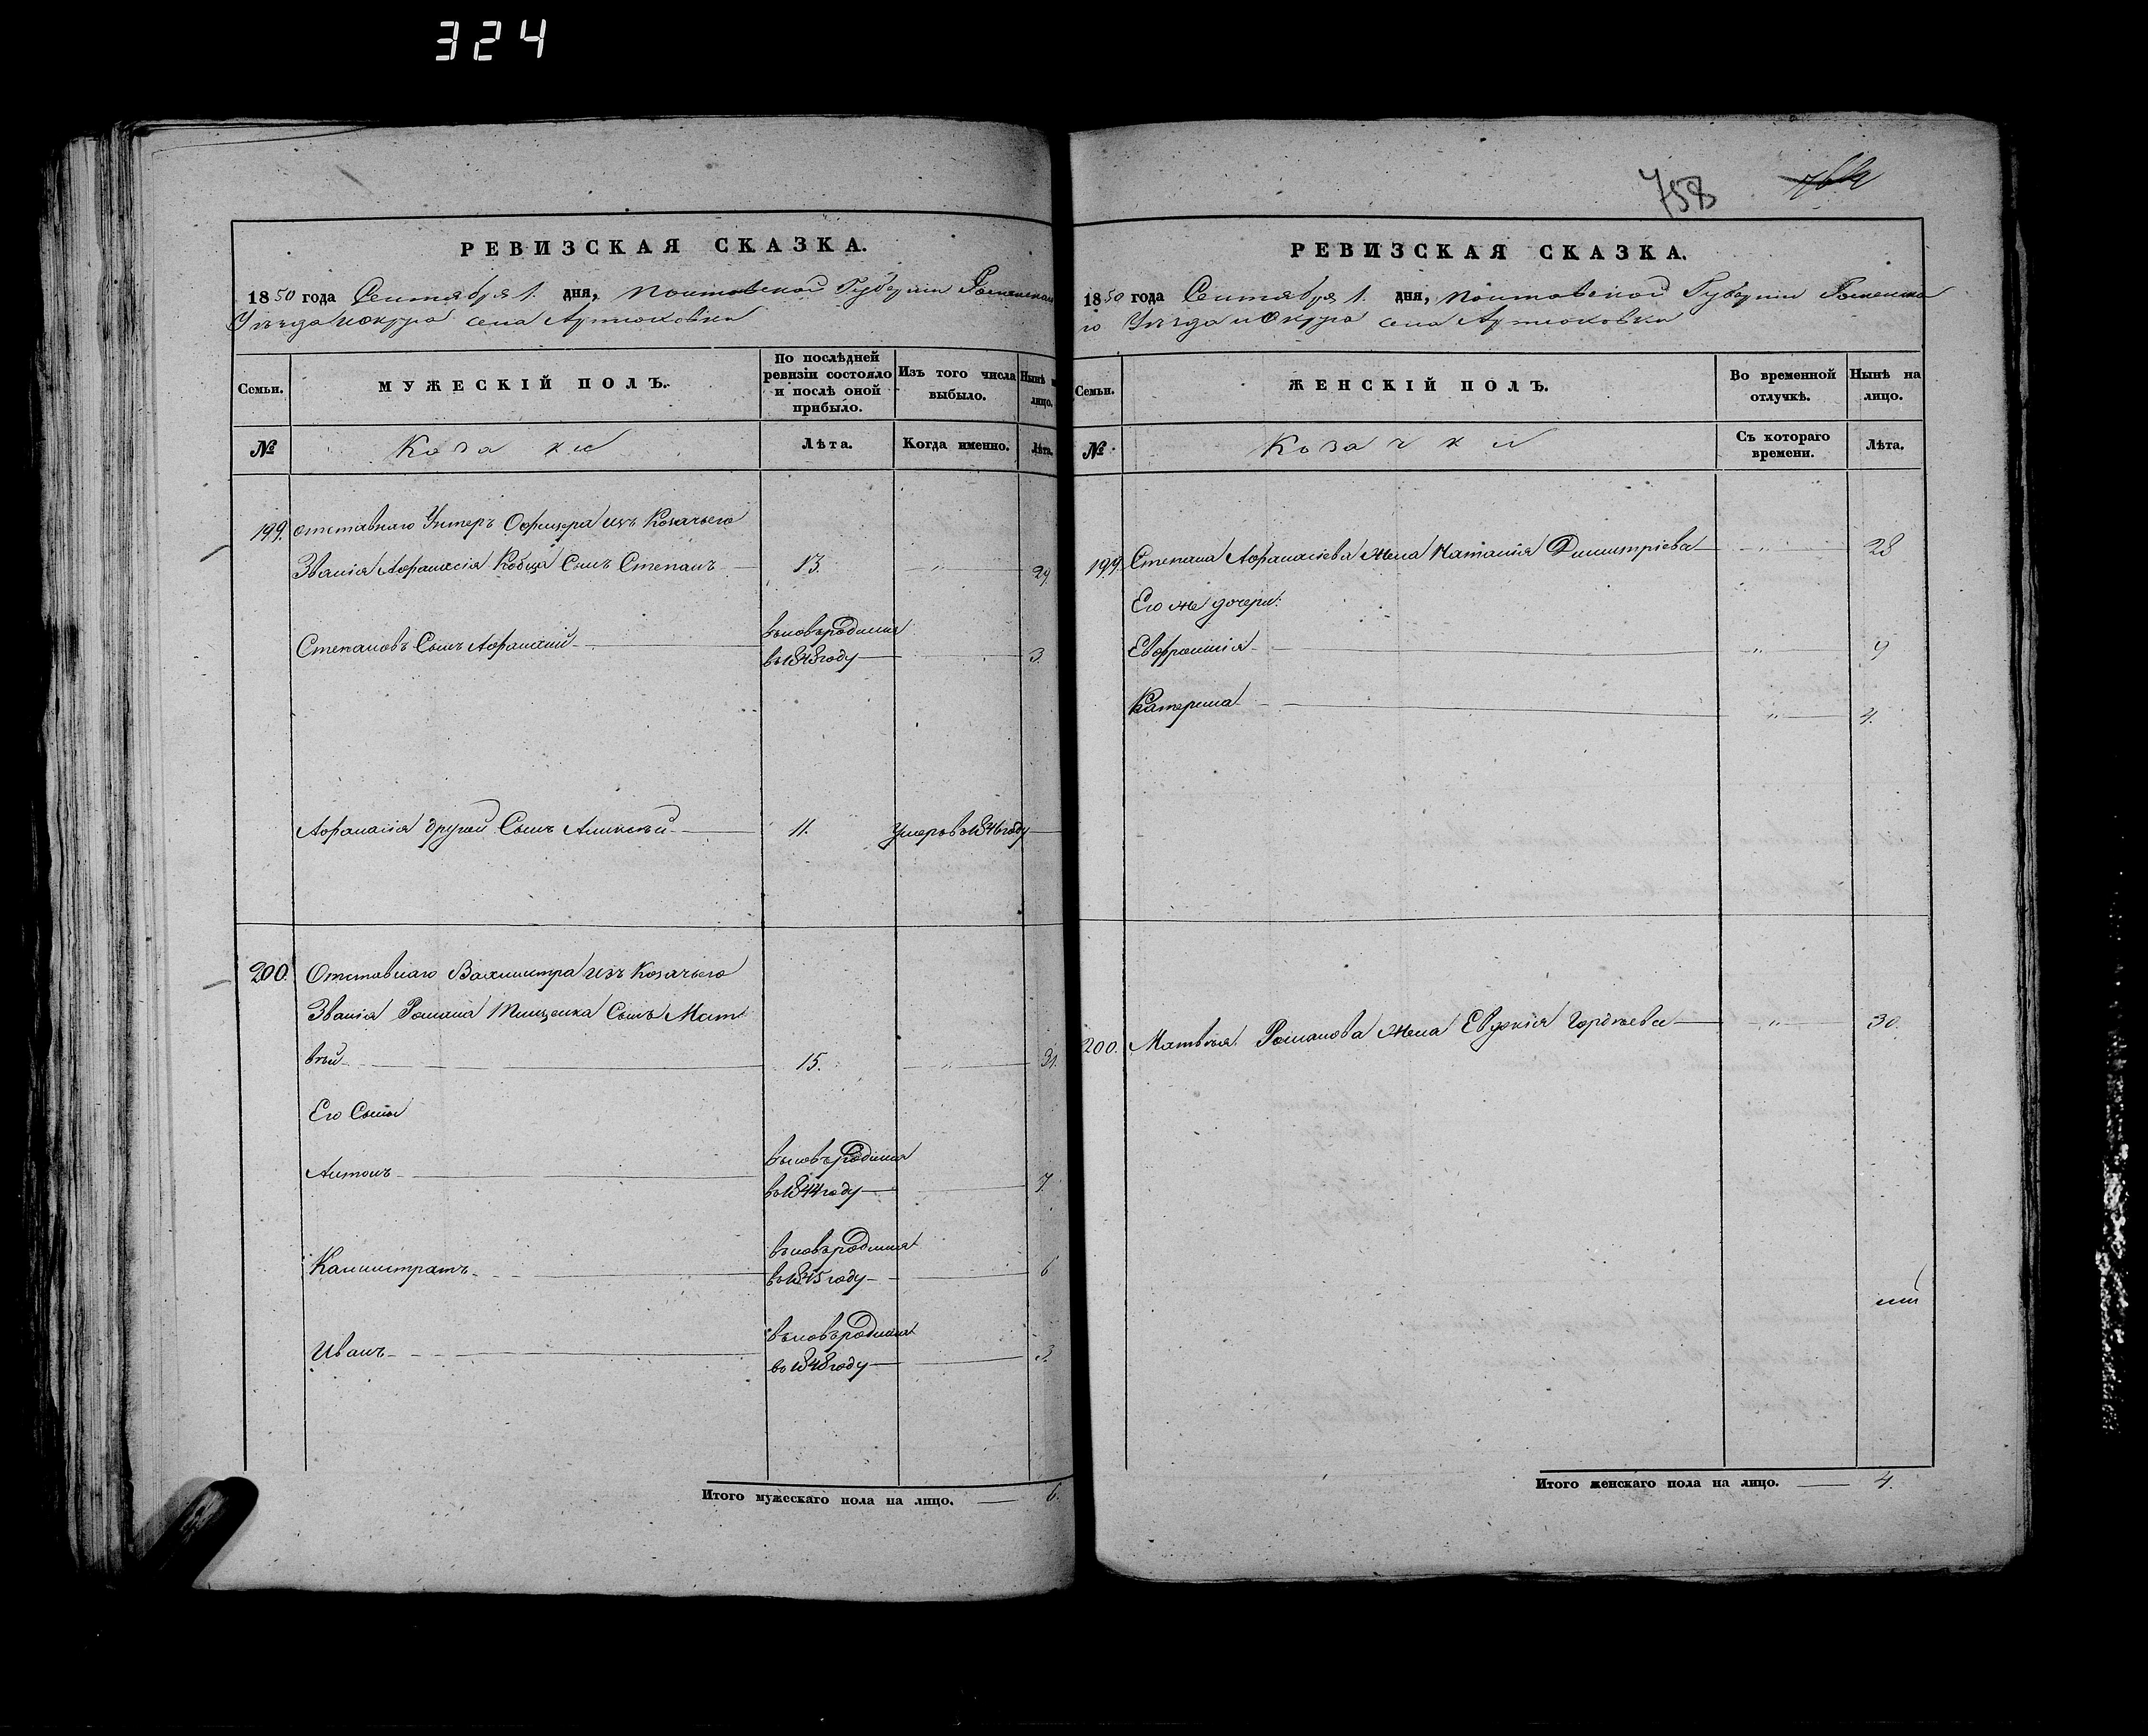 324
РЕВИЗСКАЯ СКАЗКА.
1850 года Сентября 1. дня, Полтавской Губерніи Роменскаго
Уѣзда и округа села Артюховки
Семьи.
МУЖЕСКІЙ ПОЛЪ.
По послѣдней ревизіи состояло и послѣ оной прибыло.
Изъ того числа выбыло.
Нынѣ на лицо.
№
Козаки
Лѣта.
Когда именно.
Лѣта.
199. отставнаго Унтеръ Офицера изъ Козачьего
Званія Афанасія Кобца Сынъ Степанъ 13. " 29.
вновьродился
Степановъ Сынъ Афанасій въ 1848 году 3.
Афанасія другой Сынъ Аликсѣй 11. Умеръ в 1846 году
200. Отставнаго Вахмистра изъ Козачьего
Званія Романа Тищенка Сынъ Мат
вѣй 15. " 31.
Его Сыны
вновьродился
Антонъ въ 1844 году 7
вновьродился
Калистратъ въ 1845 году 6
вновьродился
Иванъ въ 1848 году 3.
Итого мужескаго пола на лицо. 6.
758
РЕВИЗСКАЯ СКАЗКА.
1850 года Сентября 1. дня, Полтавской Губерніи Роменска
го Уѣзда и Округа села Артюховки
Семьи.
ЖЕНСКІЙ ПОЛЪ.
Во временной отлучкѣ.
Нынѣ на лицо.
№
Козачки
Съ котораго времени.
Лѣта.
199. Степана Афанасіева жена Наталія Димитріева " 28
Его же дочери:
Евфросинія " 9
Катерина " 4.
200. Матвѣя Романова жена Евдокія Гордѣева " 30.
Итого женскаго пола на лицо. 4.